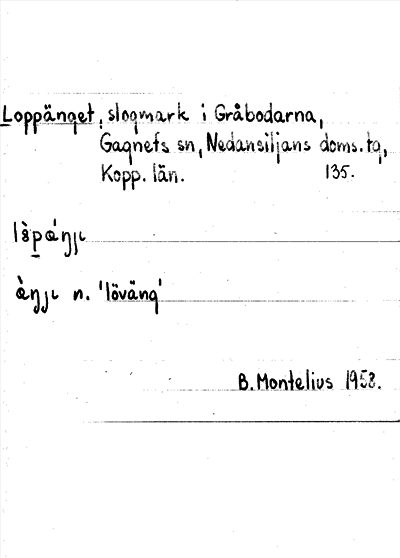 Loppänget, slogmark i Gråbodarna,
Gagnefs sn, Nedansiljans doms. tg,
Kopp. län. 135.
n. 'löväng'
B. Montelius 1958.